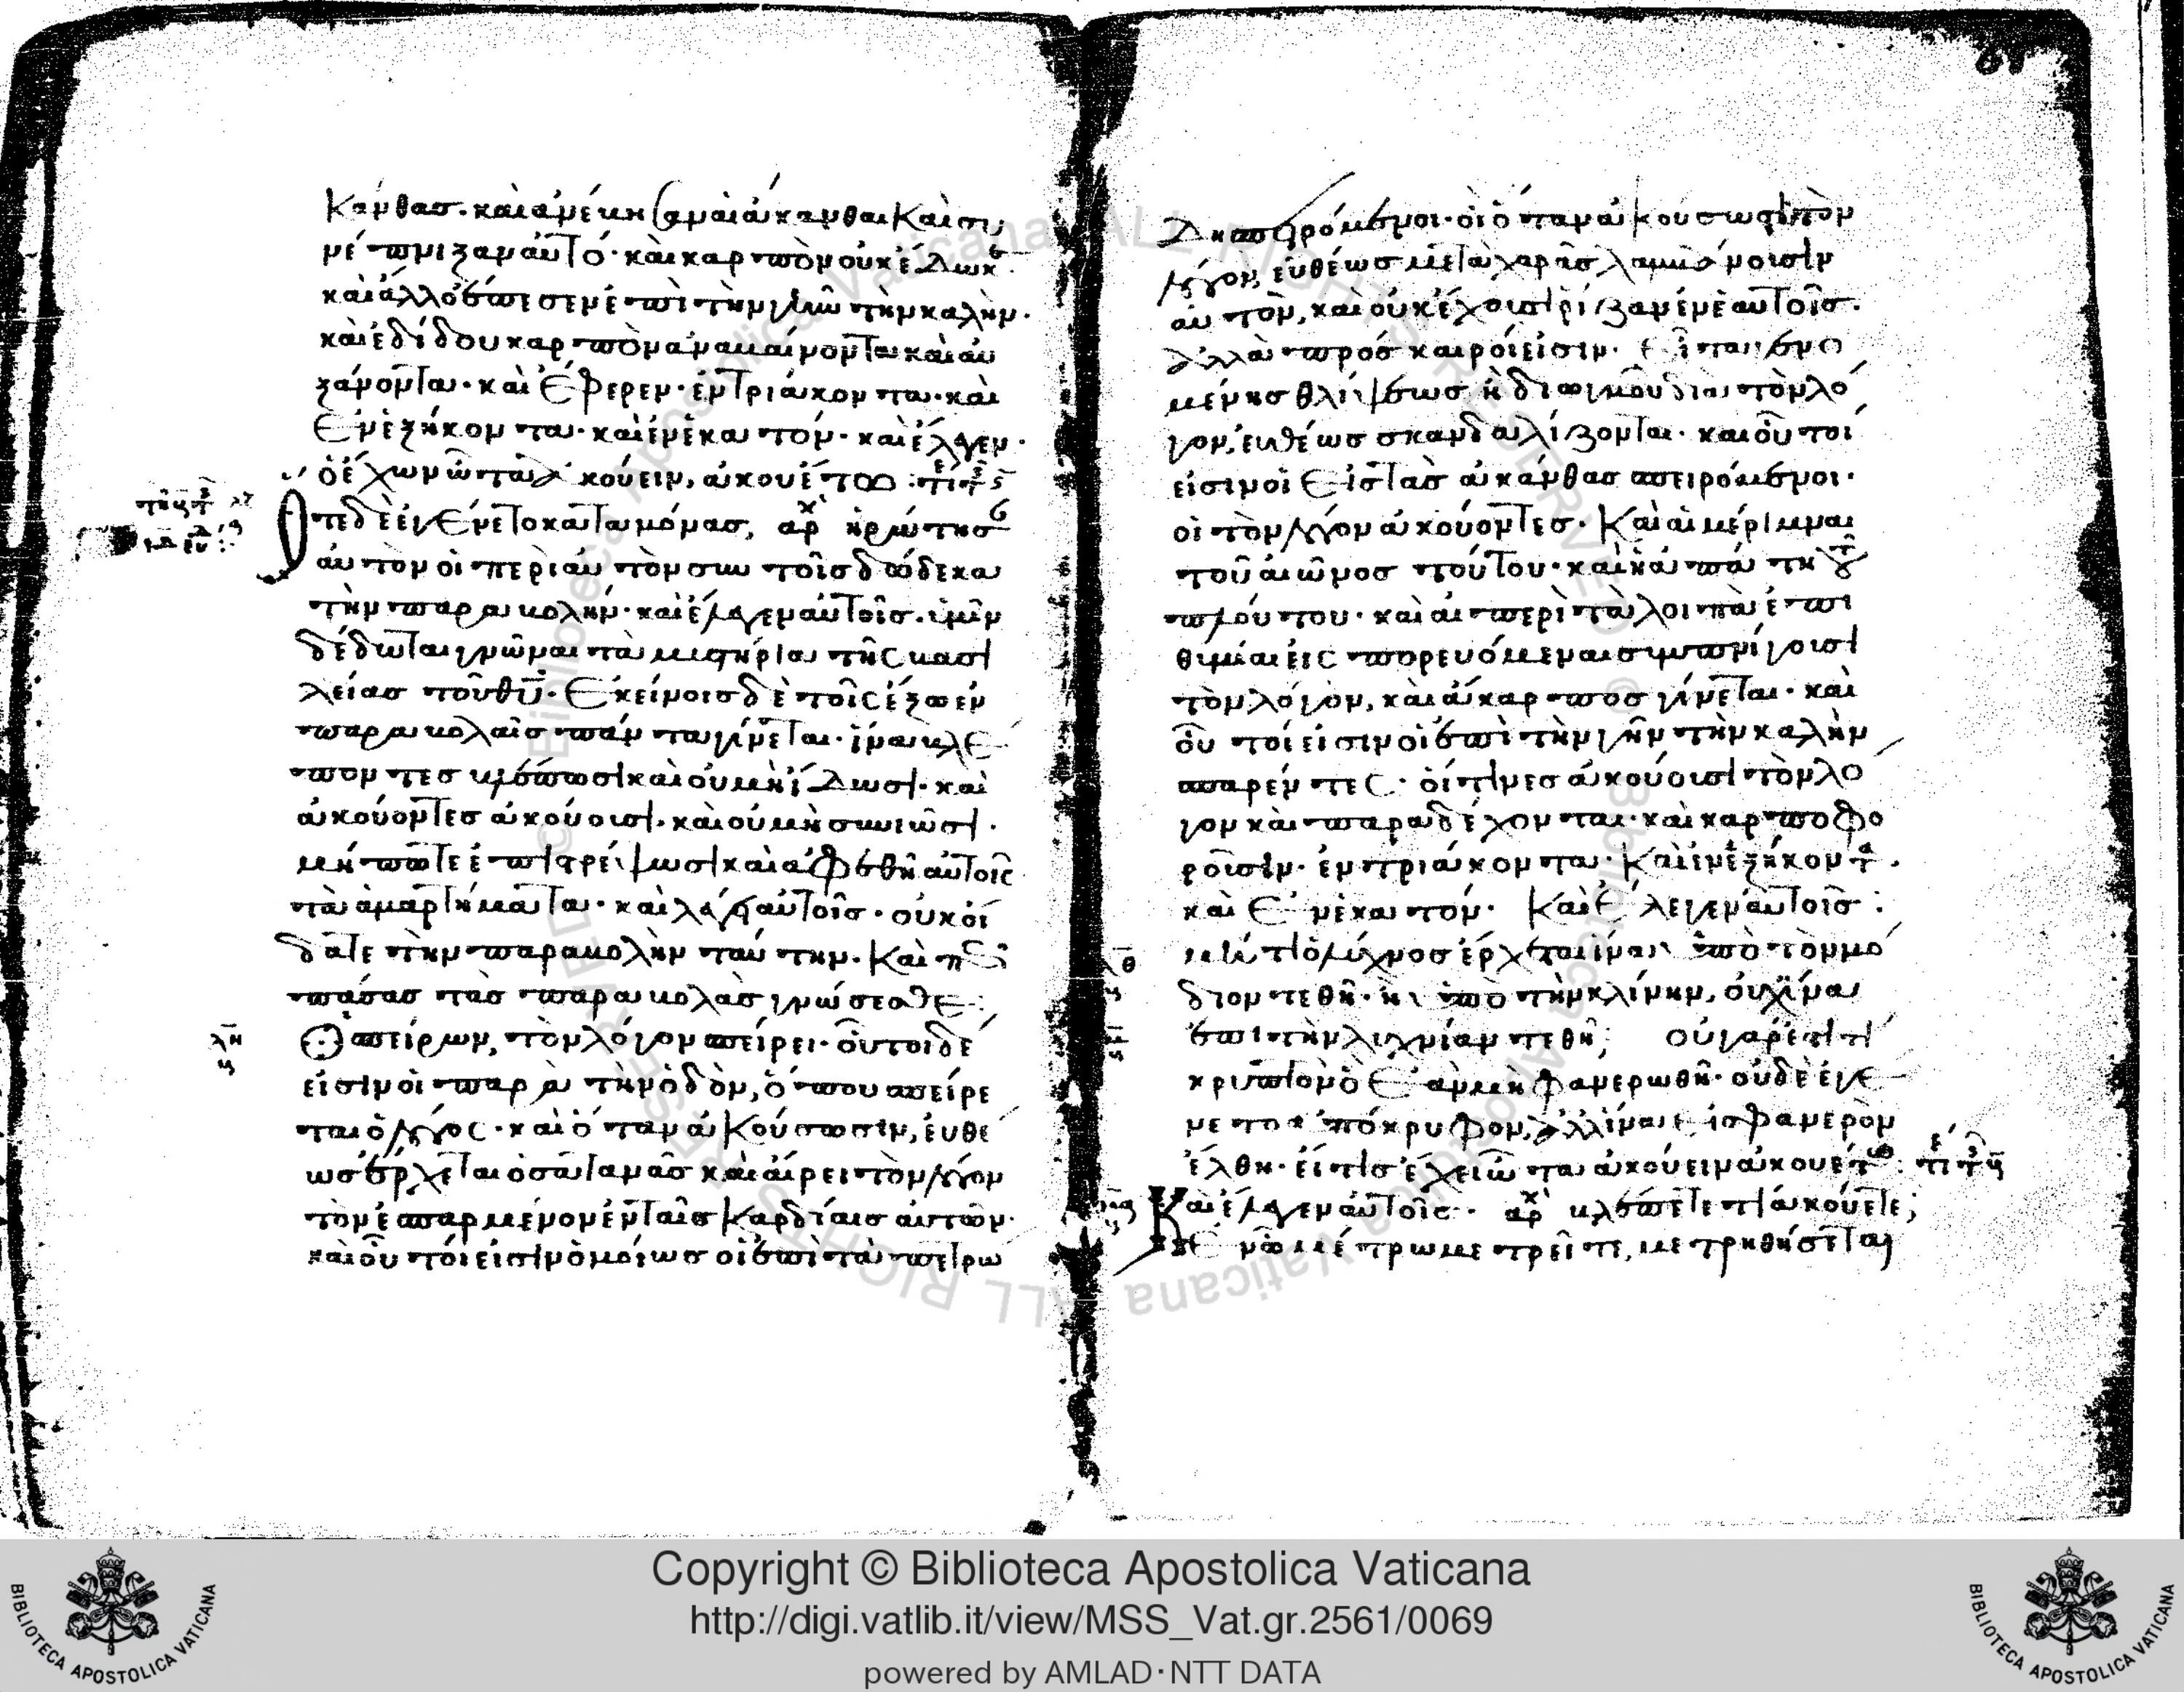 κάνθας· καὶ ἀνέβησαν αἱ ἄκανθαι καὶ συ
νέπνιξαν αὐτό· καὶ καρπὸν οὐκ έδωκε
καὶ ἄλλο έπεσεν ἐπὶ τὴν γῆν τὴν καλὴν·
καὶ ἐδίδου καρπὸν ἀναβαίνοντα καὶ αὐ
ξάνοντα· καὶ έφερεν· ἐν τριάκοντα· καὶ
ἐν ἑξήκοντα· καὶ ἐν ἑκατόν· καὶ έλεγεν·
ὁ έχων ὦτα ἀκούειν, ἀκουέτω :
Οτε δὲ ἐγένετο καταμόνας, ἠρώτησ
αὐτὸν οἱ περὶ αὐτὸν συν τοῖς δώδεκα
τὴν παραβολήν· καὶ έλεγεν αὐτοῖς· ὑμῖν
δέδοται γνῶναι τὰ μυστήρια τῆς βασι
λείας τοῦ θυ· Ἐκείνοις δὲ τοῖς έξω ἐν
παραβολαῖς πάντα γίνεται· ἵνα βλέ
ποντες βλέπωσι καὶ οὐ μὴ ίδωσι· καὶ
ἀκούοντες ἀκούουσι· καὶ οὐ μὴ συνιῶσι·
μήποτε ἐπιστρέψωσι καὶ ἀφεθῆ αὐτοῖς
τὰ ἁμαρτήματα· καὶ λέγει αὐτοῖς· οὐκ οί
δατε τὴν παραβολὴν ταύτην· καὶ πῶς
πάσας τὰς παραβολὰς γνώσεσθε :
λη
Ὁ σπείρων, τὸν λόγον σπείρει· οὗτοι δέ
εἰσιν οἱ παρὰ τὴν ὁδὸν, ὅπου σπείρε
ται ὁ λόγος· καὶ ὅταν ἀκούσωσιν, εὐθέ
ως έρχεται ὁ σατανᾶς καὶ αἴρει τὸν λόγον
τὸν ἐσπαρμένον ἐν ταῖς καρδίαις αὐτῶν·
καὶ οὗτοι εἰσὶν ὁμοίως οἱ ἐπὶ τὰ πετρώ
δη σπειρόμενοι· οἱ ὅταν ἀκούσωσι τὸν
λόγον, εὐθέως μετὰ χαρᾶς λαμβάνουσιν
αὐτὸν, καὶ οὐκ έχουσι ῥίζαν ἐν ἑαυτοῖς·
ἀλλὰ πρόσκαιροί εἰσιν· εἶτα γενο
μένης θλίψεως ἢ διωγμοῦ διὰ τὸν λό
γον, εὐθέως σκανδαλίζονται· καὶ οὗτοι
εἰσιν οἱ εἰς τὰς ἀκάνθας σπειρόμενοι·
οἱ τὸν λόγον ἀκούοντες· Καὶ αἱ μέριμναι
τοῦ αἰῶνος τούτου· καὶ ἡ ἀπάτη τοῦ
πλούτου· καὶ αἱ περὶ τὰ λοιπὰ ἐπι
θυμίαι εἰσπορευόμεναι συμπνίγουσι
τὸν λόγον, καὶ ἄκαρπος γίνεται· καὶ
οὗτοί εἰσιν οἱ ἐπὶ τὴν γῆν τὴν καλὴν
σπαρέντες· οἵτινες ἀκούουσι τὸν λό
γον καὶ παραδέχονται· καὶ καρποφο
ροῦσιν· ἐν τριάκοντα· Καὶ ἐν ἑξήκοντα·
καὶ ἐν ἑκατόν· Καὶ έλεγεν αὐτοῖς :
μήτι ὁ λύχνος έρχεται ἵνα ὑπὸ τὸν μό
διον τεθῆ· ἢ ὑπὸ τὴν κλίνην, οὐχ ἵνα
ἐπι τὴν λυχνίαν τεθῆ; οὐ γάρ ἐστι τί
κρυπτὸν ὃ ἐὰν μὴ φανερωθῆ· οὐδὲ ἐγέ
νετο ἀπόκρυφον, ἀλλ ἵνα εἰς φανερὸν
έλθη· εί τις έχει ὦτα ἀκούειν ἀκουέτω :
Καὶ έλεγεν αὐτοῖς· βλέπετε τί ἀκούετε;
Ἐν ὧ μέτρω μετρεῖτε, μετρηθήσεται
Copyright © Biblioteca Apostolica Vaticana
http://digi.vatlib.it/view/MSS_Vat.gr.2561/0069
powered by AMLAD·NTT DATA
BIBLIOTECA APOSTOLICA VATICANA
BIBLIOTECA APOSTOLICA VATICANA